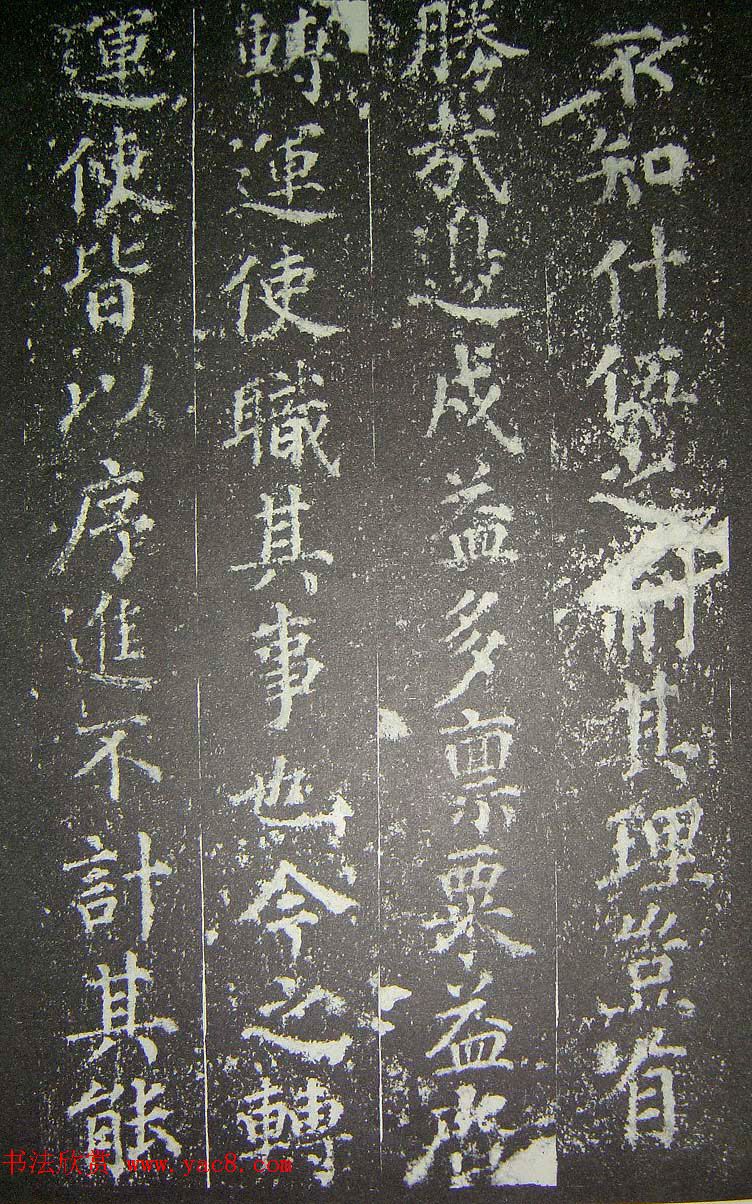 不知什伍之而其理豈有
勝哉邊戍益多稟粟益廣
轉運使職其事也今之轉
運使皆以序進不計其能
书法欣赏 www.yac8.com